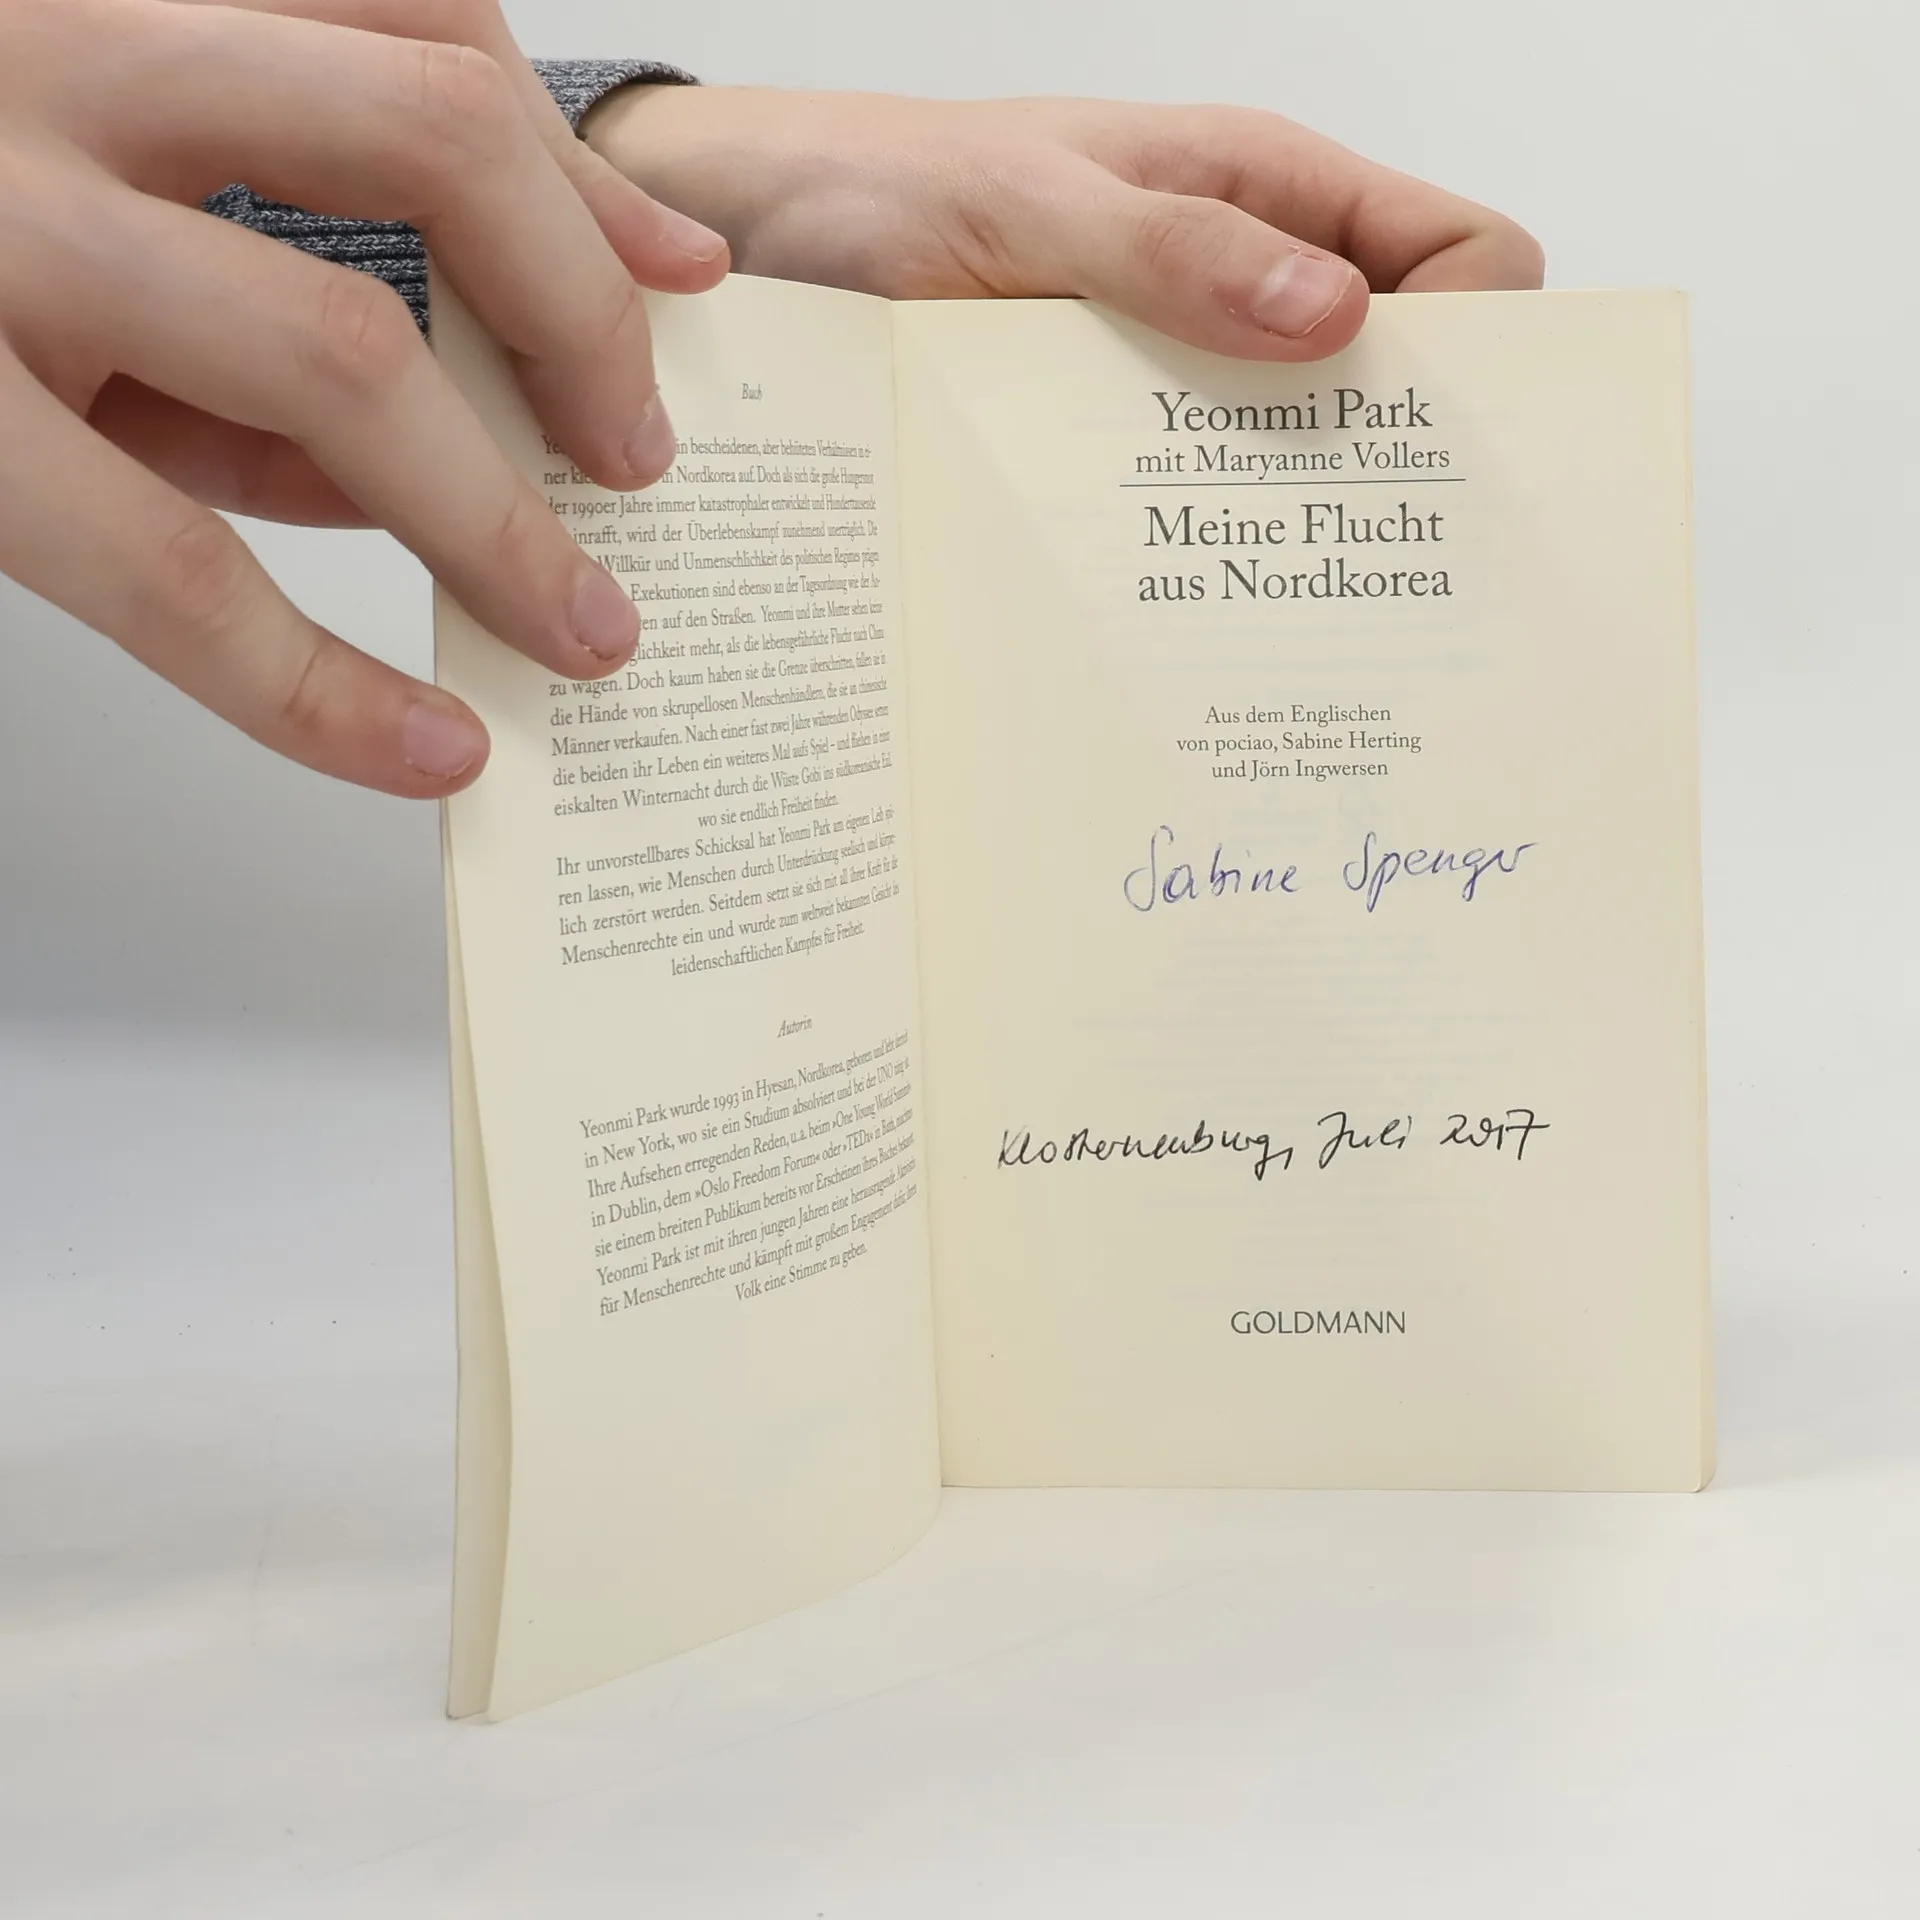 Buch
in bescheidenen, aber behüteten Verhältnissen in ei-
ner in Nordkorea auf. Doch als sich die große Hungersnot
der 1990er Jahre immer katastrophaler entwickelt und Hunderttausende
hinrafft, wird der Überlebenskampf zunehmend unerträglich. Die
Willkür und Unmenschlichkeit des politischen Regimes prägen
Exekutionen sind ebenso an der Tagesordnung wie der An-
auf den Straßen. Yeonmi und ihre Mutter sehen keine
glichkeit mehr, als die lebensgefährliche Flucht nach China
zu wagen. Doch kaum haben sie die Grenze überschritten, fallen sie in
die Hände von skrupellosen Menschenhändlern, die sie an chinesische
Männer verkaufen. Nach einer fast zwei Jahre währenden Odyssee setzen
die beiden ihr Leben ein weiteres Mal aufs Spiel – und fliehen in einer
eiskalten Winternacht durch die Wüste Gobi ins südkoreanische Exil,
wo sie endlich Freiheit finden.
Ihr unvorstellbares Schicksal hat Yeonmi Park am eigenen Leib spü-
ren lassen, wie Menschen durch Unterdrückung seelisch und körper-
lich zerstört werden. Seitdem setzt sie sich mit all ihrer Kraft für die
Menschenrechte ein und wurde zum weltweit bekannten Gesicht des
leidenschaftlichen Kampfes für Freiheit.
Autorin
Yeonmi Park wurde 1993 in Hyesan, Nordkorea, geboren und lebt derzeit
in New York, wo sie ein Studium absolviert und bei der UNO tätig ist.
Ihre Aufsehen erregenden Reden, u.a. beim »One Young World Summit«
in Dublin, dem »Oslo Freedom Forum« oder »TEDx« in Bath, machten
sie einem breiten Publikum bereits vor Erscheinen ihres Buches bekannt.
Yeonmi Park ist mit ihren jungen Jahren eine herausragende Aktivistin
für Menschenrechte und kämpft mit großem Engagement dafür, ihrem
Volk eine Stimme zu geben.
Yeonmi Park
mit Maryanne Vollers
Meine Flucht
aus Nordkorea
Aus dem Englischen
von pociao, Sabine Herting
und Jörn Ingwersen
Sabine Spenger
Klosterneuburg, Juli 2017
GOLDMANN